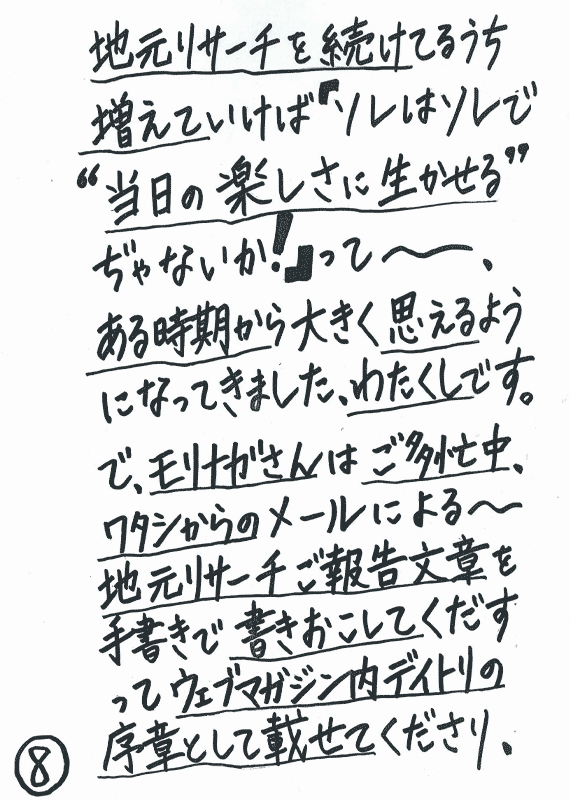 地元リサーチを続けてるうち
増えていけば『ソレはソレで
“当日の楽しさに生かせる”
ぢゃないか!』って〜、
ある時期から大きく思えるよう
になってきました、わたくしです。
で、モリナガさんはご多忙中、
ワタシからのメールによる〜
地元リサーチご報告文章を
手書きで書きおこしてくだす
ってウェブマガジン内デイトリの
序章として載せてくださり、
8